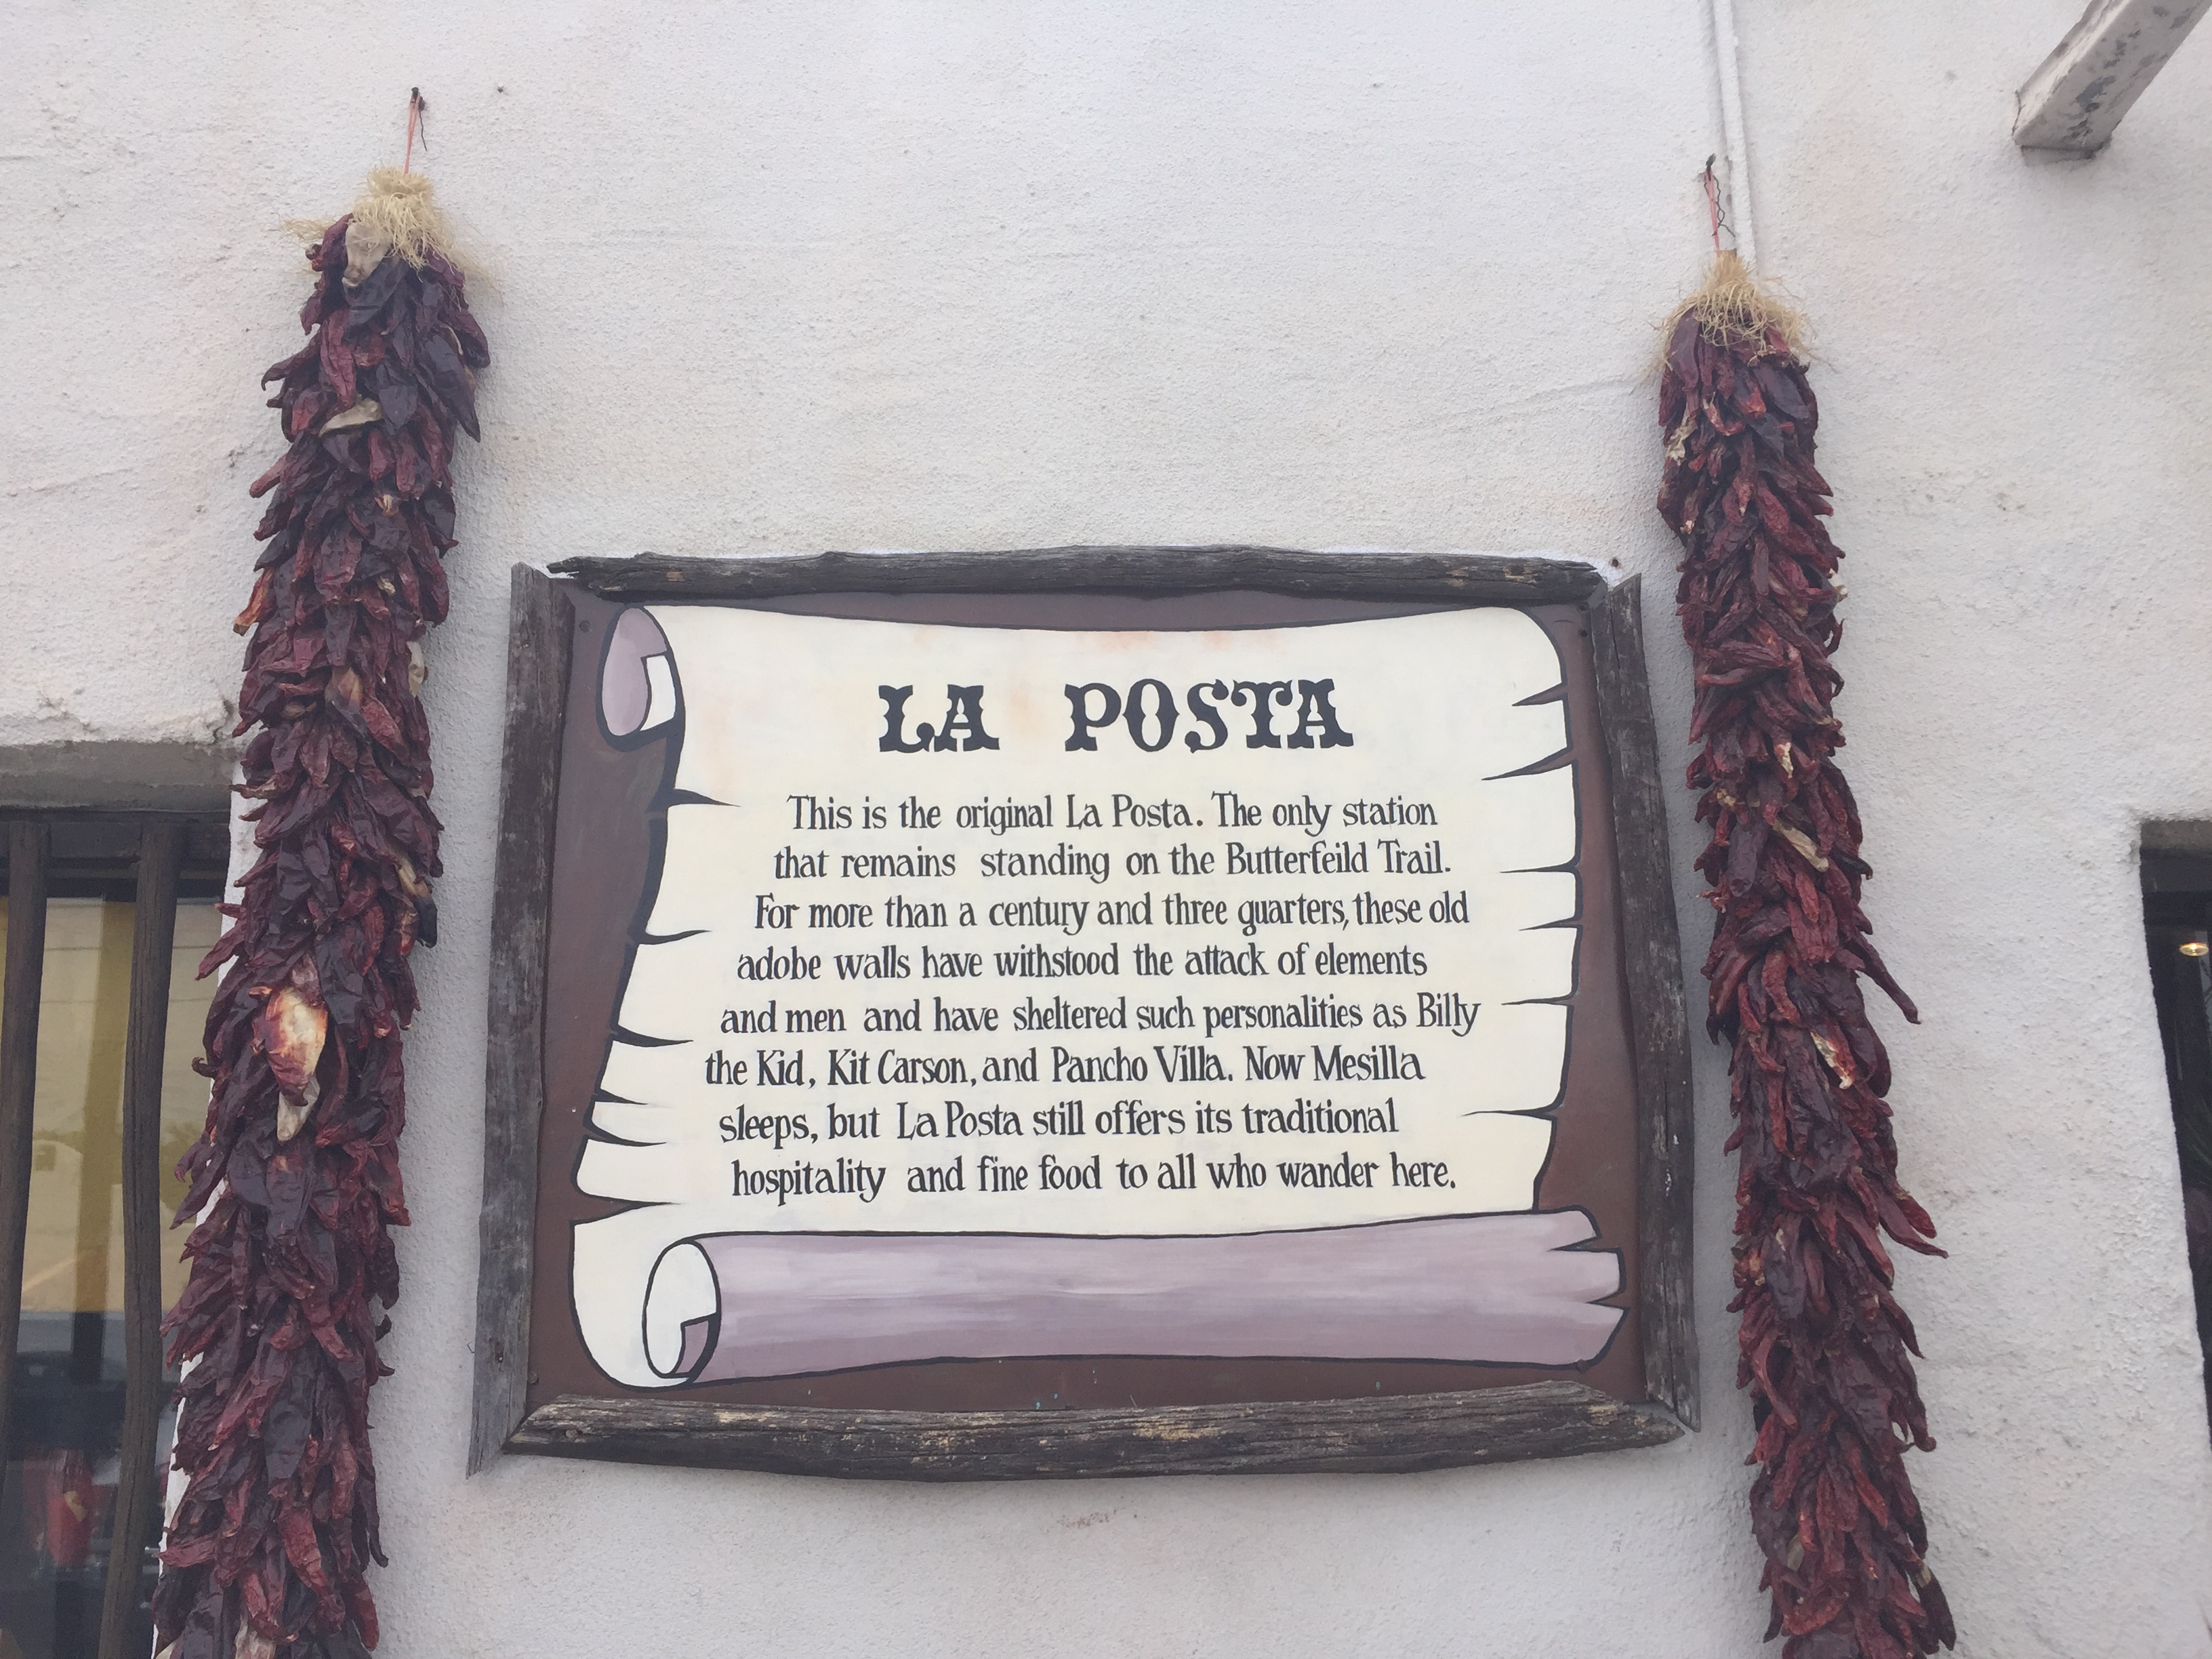 LA POSTA
This is the original La Posta. The only station
that remains standing on the Butterfeild Trail.
For more than a century and three guarters, these old
adobe walls have withstood the attack of elements
and men and have sheltered such personalities as Billy
the Kid, Kit Carson, and Pancho Villa. Now Mesilla
sleeps, but La Posta still offers its traditional
hospitality and fine food to all who wander here.